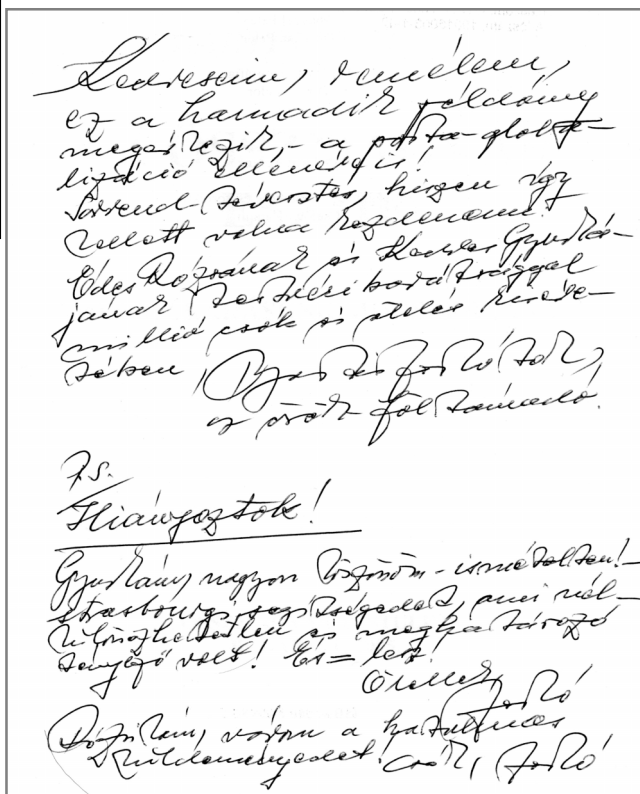 Kedveseim, remélem,
ez a harmadik példány
megérkezik, - a posta-globa-
lizáció ellenére is!
Sorrend-tévesztés, hiszen így
kellett volna kezdenem:
Édes Rózsának és Kedves Gyuská-
jának testvéri barátsággal
millió csók és ölelés kísére-
tében,
az örök föltámadó.
P.S.
Hiányoztok!
Gyuskám, nagyon köszönöm - ismételten! -
strasbourgi segítségedet, ami nél-
külözhetetlen és meghatározó
tényező volt! És = lesz!
Ölellek,
Joskó
Rózsikám, várom a hatalmas
küldeményedet! Csók, Joskó